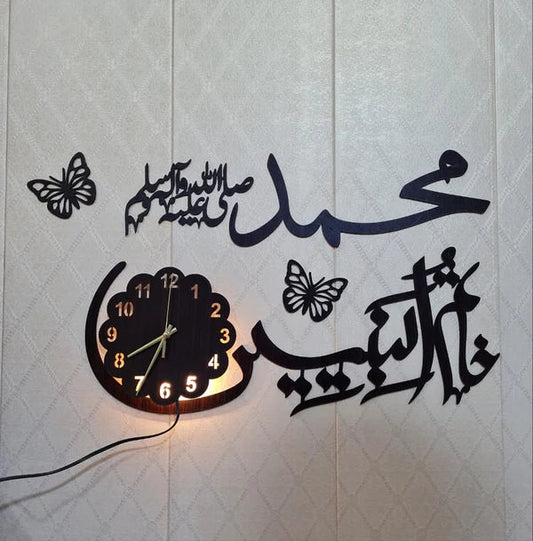 محمد صلى الله عليه وآله وسلم
خاتم النبيين
12
1
2
3
4
5
6
7
8
9
10
11